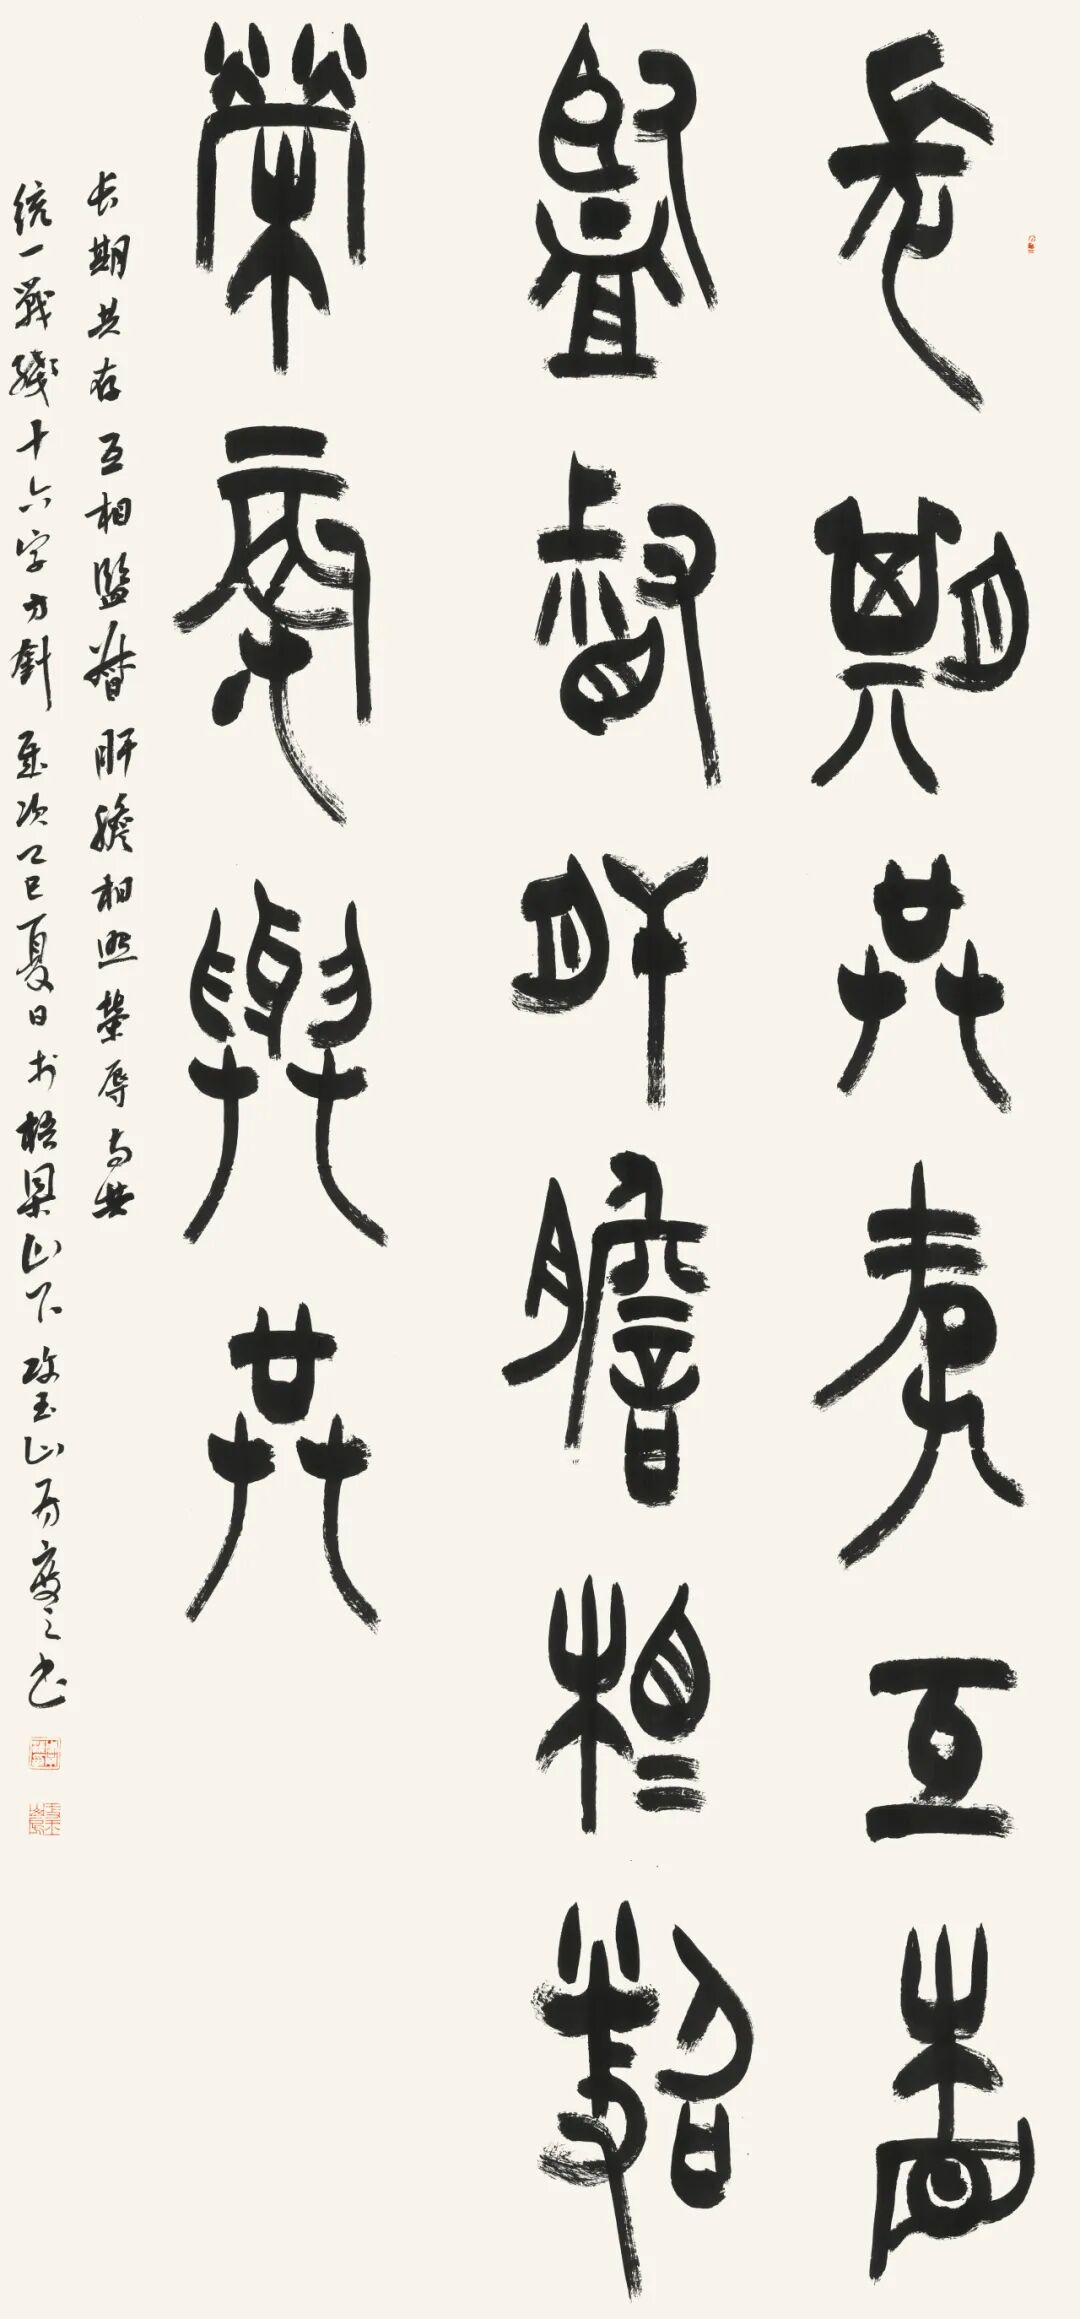 長期共存互相
監督肝膽相照
榮辱與共
长期共存互相監督肝膽相照榮辱与共
統一戰綫十六字方針歲次乙巳夏日於梧山下攻玉山房之书